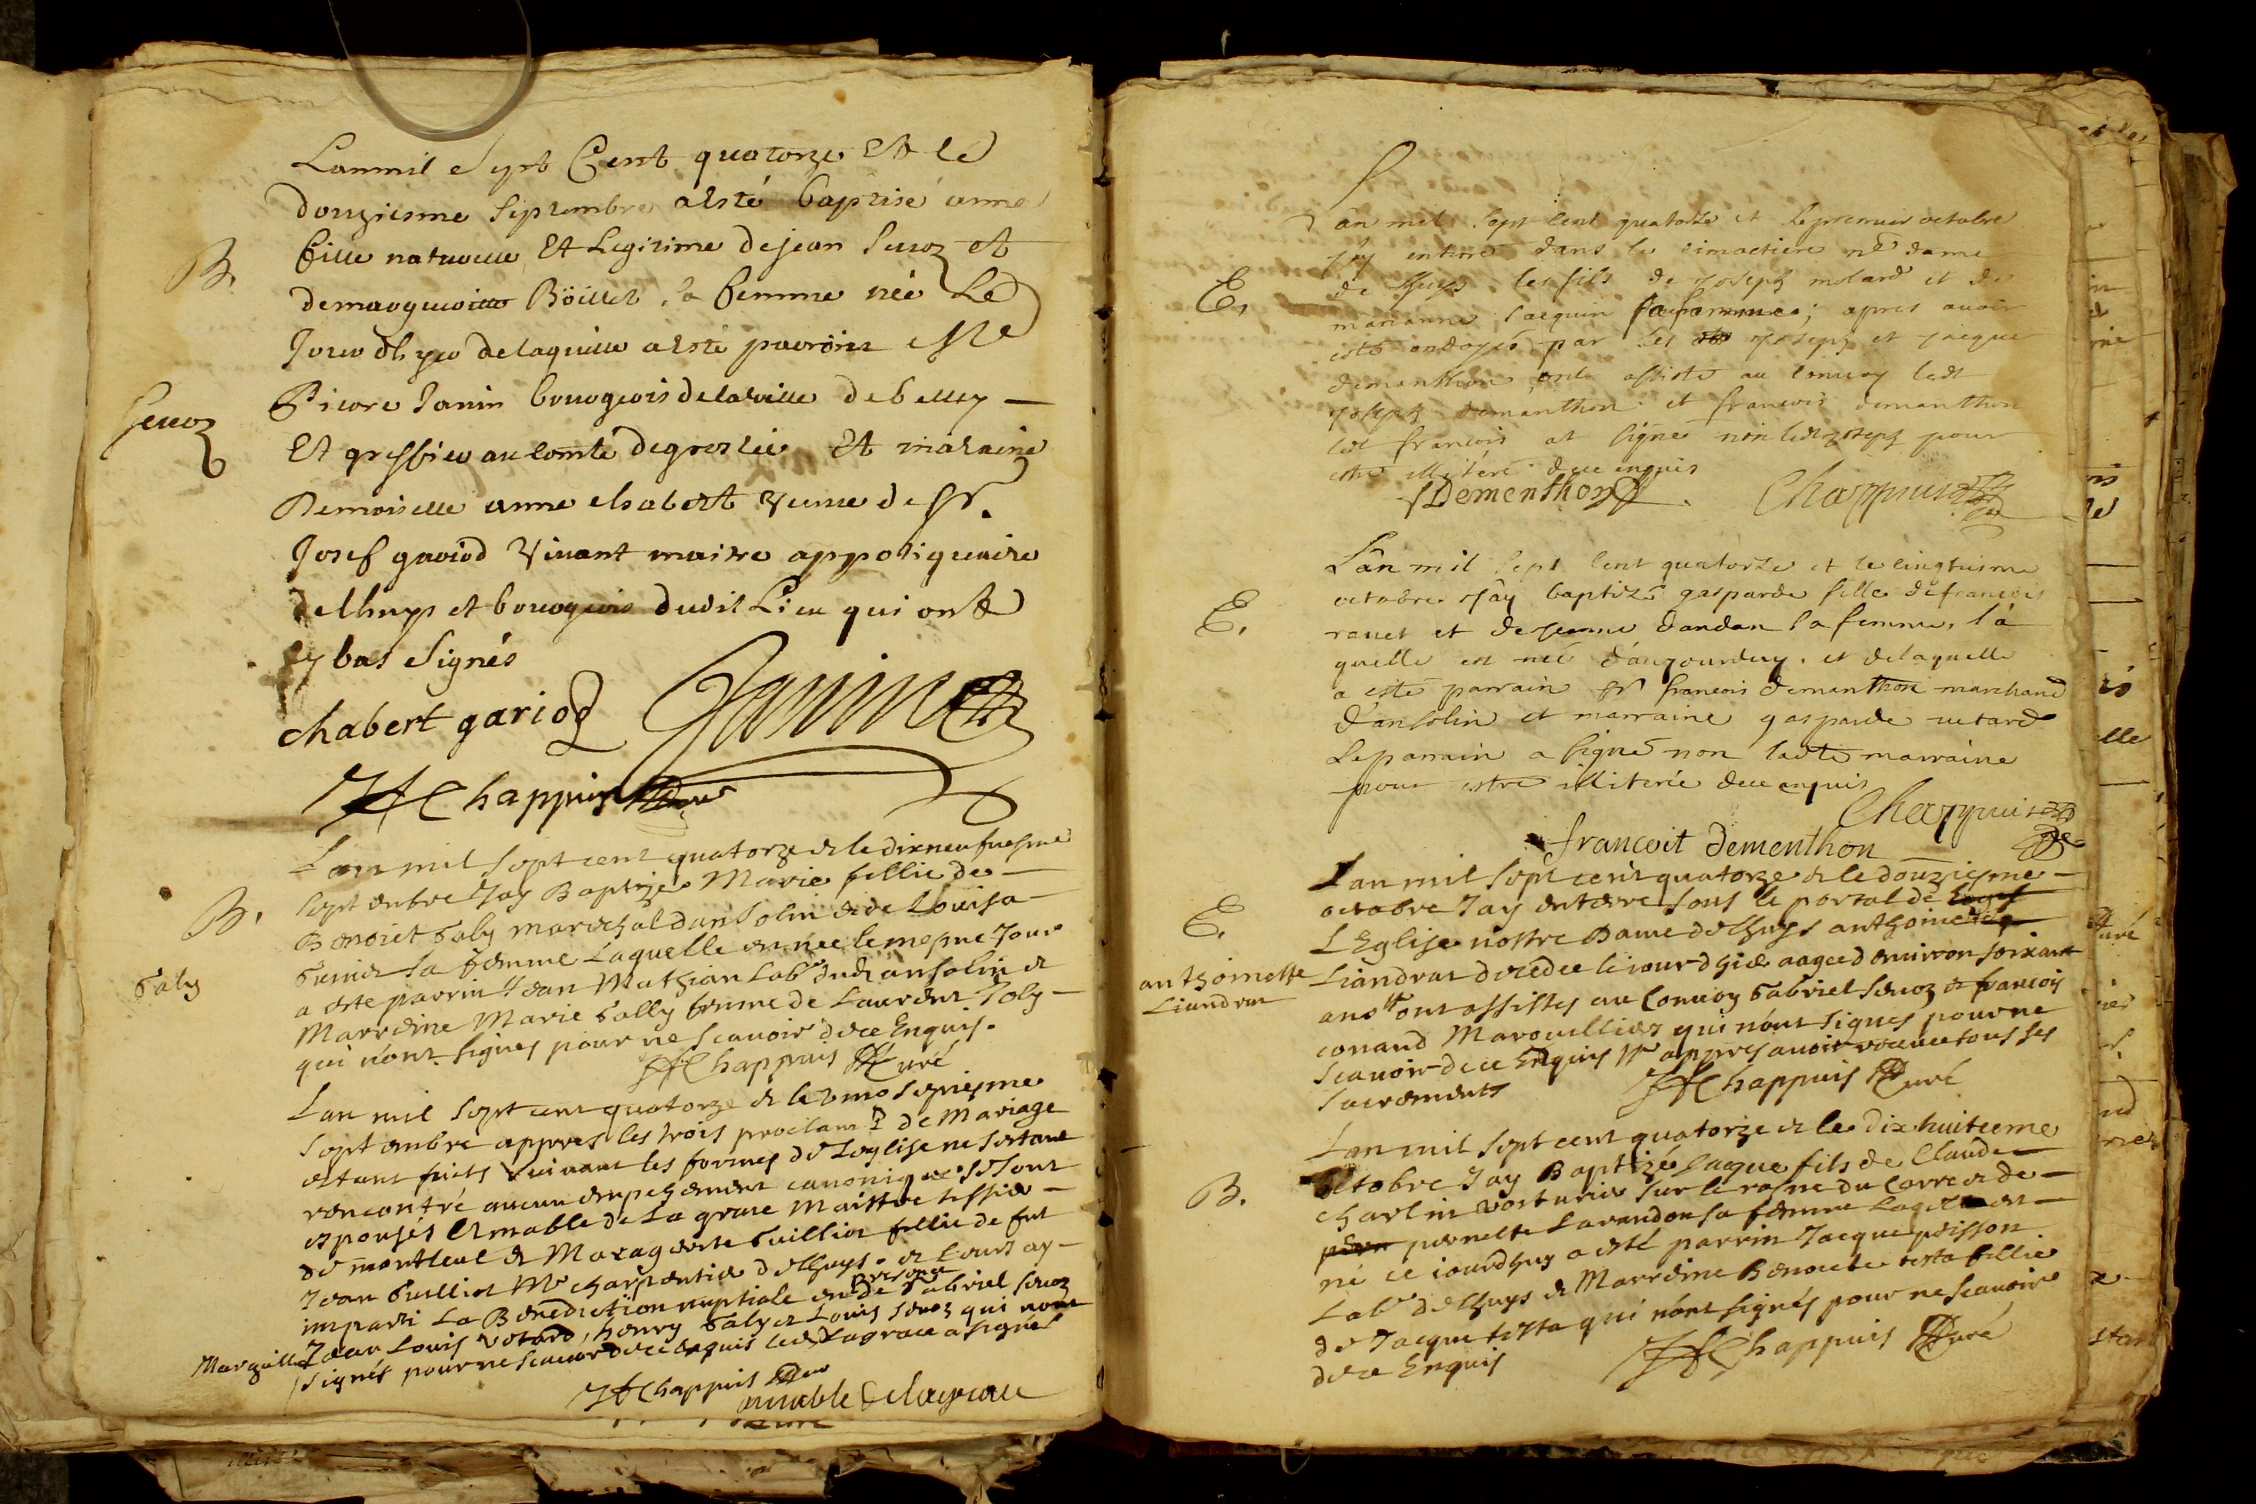 Lanmil Sept Cent quatorze Et le
douziesme Septembre a esté baptisé anne
B.
fille naturelle Et Legitime de jean Sevoz et
de marguerite Böillet sa femme née Le
Jour dhyer de laquelle a esté parrain Me
Sevoz
Pierre Janin bourgeois de la ville de belley
Et greffier au comté de groslée Et maraine
Demoiselle anne chabert veuve de Sr.
Josef gariod vivant maitre appotiquaire
de lhuys et bourgeois dudit Lieu qui ont
cy bas Signés
chabert gariod Janin
Chappuis curé
Lan mil sept cent quatorze et le dixneufuiesme
septembre Jay Baptizé Marie fillie de
B.
Benoiet Galy mareschal dansolin et de Louisa
femme Laquelle est née le mesme Jour
Galy
a esté parrin Jean Mathian Labr dudt ansolin et
Marreine Marie Gally femme de Laurent Joly
qui n'ont signés pour ne scavoir de ce Enquis.
Chappuis Curé
Lan mil sept cent quatorze et le vint septiesme
septembre appres les trois proclam de Mariage
estant faits suivant les formes de Leglise ne sestant
rencontré aucun empechement canonique se sont
espousés Aimable de La grave Maistre tessier
de montleul et Maragerite Guillion fillie de fut
Jean Guillion Me charpentier de lhuys. et Leurs ay
imparti La Benediction nuptiale en presence de Gabriel Sevoz
Marguillier Jean Louis Vetard, henry Galy et Louis Sevoz qui n'ont
signés pour ne scavoir de ce enquis led Lagrave a signés
Chappuis Curé
aimable delagrave
L'an mil sept cent quatorze et le premier octobre
j'ay enterré dans le cimoetiere ne dame
E.
de lhuys le fils de joseph molard et de
marianne jacquin sa femme; apres avoir
esté ondoyé par les joseph et jacque
dementhon, ont assisté au convoy ledt
joseph demanthon et francois demanthon
ledt francois at signé non ledt joseph pour
estre illiteré de ce enquis
f Dementhon Chappuis
L'an mil sept cent quatorze et le cinqtiesme
octobre j'ay baptizé gasparde fille de francois
E.
ravet et de jeanne dandan sa femme, la
quelle est née d'aujourdhuy. et de laquelle
a esté parrain sr francois demanthon marchand
d'ansolin et marraine gasparde vetard
Le parrain a signé non ladte marraine
pour estre illiterée de ce enquis
Chappuis
francoit Dementhon
Lan mil sept cent quatorze et le douziesme
octobre Jay enterre sous le portal de
E.
LEglise nostre Dame de lhuys anthoinette
anthoinette
Liandrat
Liandrat decedee le iourd hier aagee d'environ soixante
ans ont assistes au Convoy Gabriel Sevoz et francois
conand Marguilliers qui n'ont signes pour ne
scavoir de ce Enquis appres avoir receue tous ses
sacrements Chappuis Curé
Lan mil sept cent quatorze et le dix huiteeme
octobre Jay Baptizé Jaque fils de Claude
B.
charlin voeturier sur le rosne du et de
pernette Lavandon sa femme Laquelle est
né ce iourdhuy a esté parrin Jacque poisson
Labr de lhuys et Marreine Benoiete testa fillie
de Jacque testa qui n'ont signés pour ne scavoir
de ce Enquis Chappuis Curé